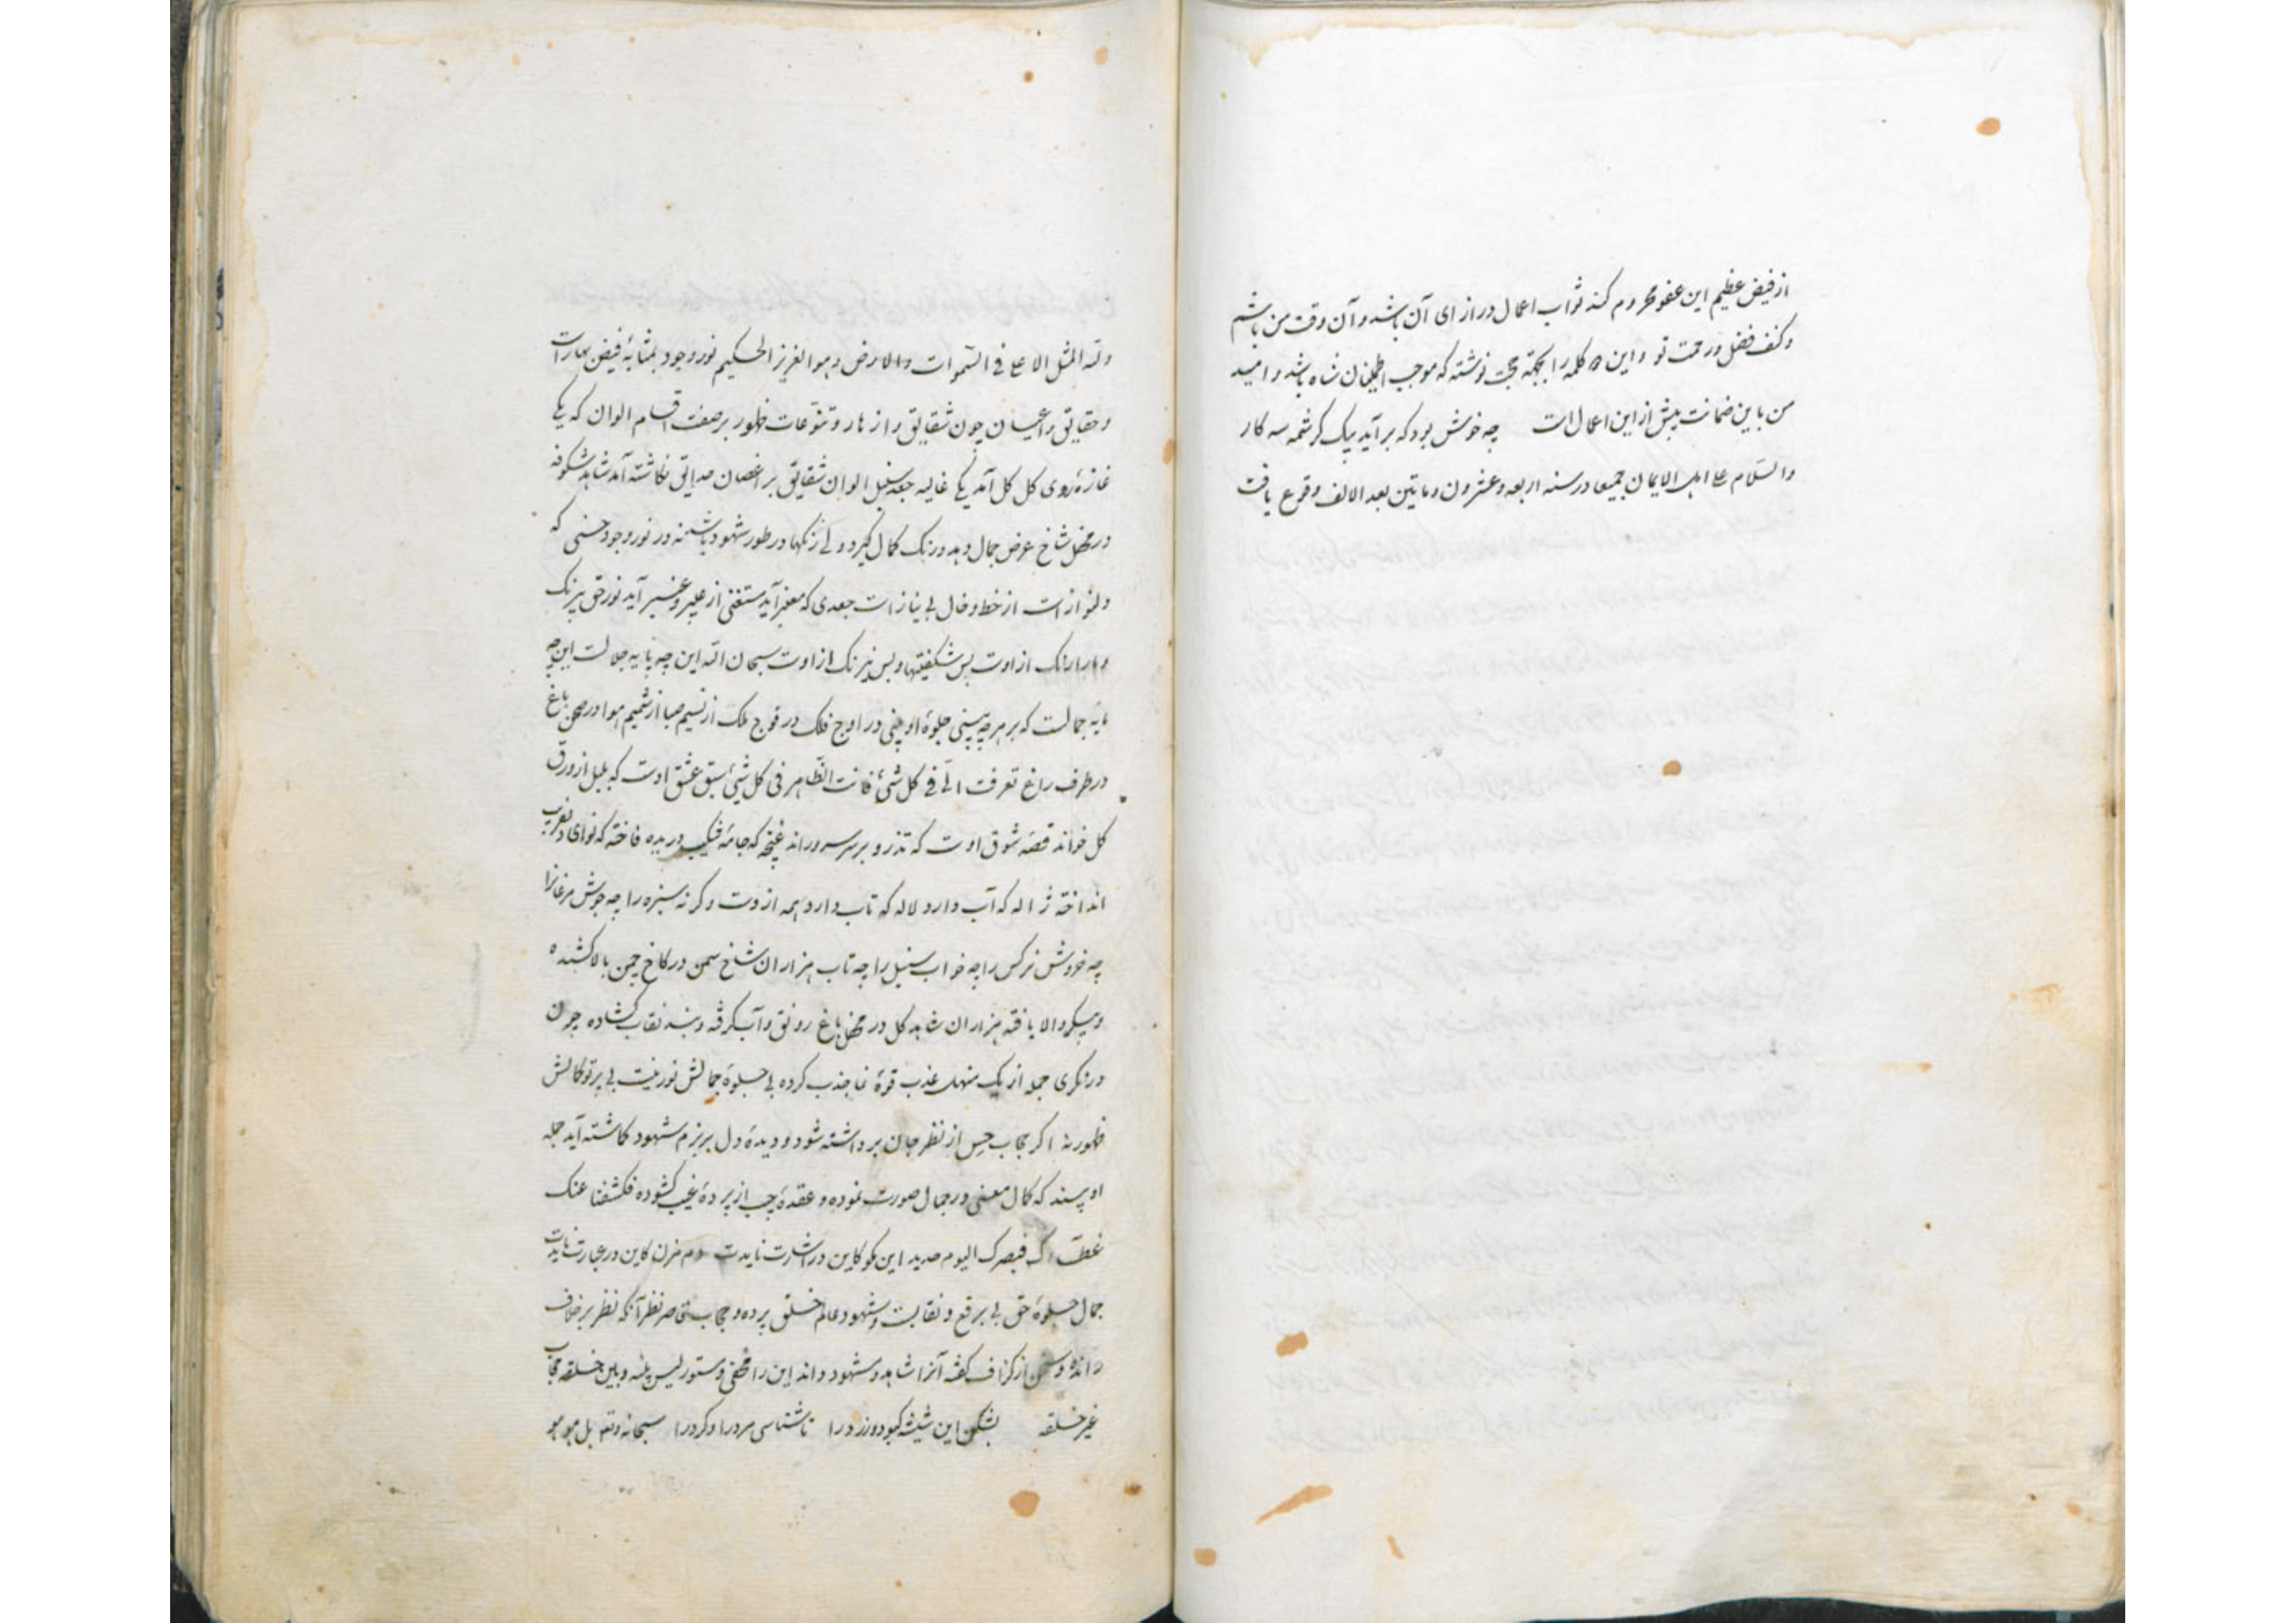 از فیض عظیم این عفو محروم کند ثواب اعمال در ازای آن باشد و آن وقت من باشم
و کنف فضل و رحمت تو و این کلمه را بجهة حجت نوشته که موجب اطمینان شاه باشد و امید
من باین ضمانت بیش از این اعمال است چه خوش بود که بر آید بیک کرشمه سه کار
والسلام علی اهل الایمان جمیعا در سنه اربعه و عشرون و ماتین بعد الالف وقوع یافت
ولله المثل الاعلی فی السموات والارض و هو العزیز الحکیم نور وجود بمثابۀ فیض بهارات
و حقایق و اعیان چون شقایق و ازهار و تنوعات ظهور بر صفت اقسام الوان که یکی
غازۀ روی کل کل آمد یکی غالیه جعد سنبل الوان شقایق بر اغصان حدایق نکاشته آمد شاهد شکوفه
در محفل شاخ عرض جمال دهد و رنک کمال کیرد ولی رنکها در طور شهود باشد نه در نور وجود حسنی که
دلنواز است از خط و خال بی نیاز است جعدی که معنبر آید مستغنی از عبیر و عنبر آید نور حق بیرنک
از اوست بس شکفتیها و بس نیرنک از اوست سبحان الله این چه پایه جلالست این چه
مایه جمالست که بر هر چه بینی جلوۀ او بینی در اوج فلک در فوج ملک از نسیم صبا از شمیم هوا در صحن باغ
در طرف راغ تعرفت الی فی کل شئ فانت الظاهر فی کل شئ سبق عشق اوست که بلبل از ورق
کل خواند قصه شوق اوست که تذرو بر سر سرو راند غنچه که جامه شکیب دریده فاخته که نوای دلفریب
انداخته ژاله که آب دارد لاله که تاب دارد همه ازوست و کر نه سبزه را چه جوش مرغانرا
چه خروش نرکس را چه خواب سنبل را چه تاب هزاران شاخ سمن در کاخ چمن بالا کشیده
و پیکر والا یافته هزاران شاهد کل در محفل باغ رونق و آب کرفته و بند نقاب کشاده چون
در نکری جمله از یک منهل عذب قوۀ نما جذب کرده بی جلوۀ جمالش نور نیست بی پرتو کمالش
ظهور نه اکر حجاب حس از نظر جان برداشته شود و دیدۀ دل بر بزم شهود کماشته آید جمله
او بیند که کمال معنی در جمال صورت نموده و عقدۀ حجب از پردۀ غیب کشوده فکشفنا عنک
غطاءک فبصرک الیوم حدید این مکو کاین در اشارت نایدت دم مزن کاین در عبارت نایدت
جمال جلوۀ حق بی برقع و نقابست و شهود عالم خلق پرده و حجاب قاصر نظر آنکه نظر بر خلاف
رانده و سخن از کزاف کفته آنرا شاهد و مشهود داند این را مخفی و مستور لیس بینه و بین خلقه حجاب
غیر خلقه بشکن این شیشه کبود و زرد را تا شناسی مرد را و کرد را سبحانه و تعالی بل هو هو